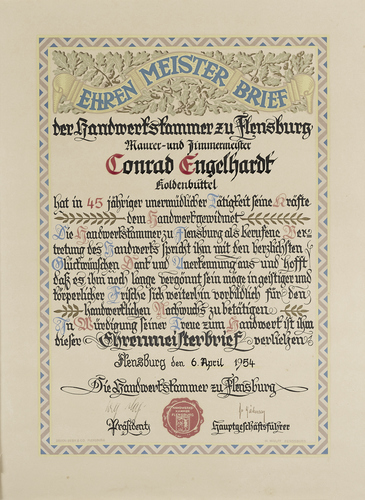 EHREN MEISTER BRIEF
der Handwerkskammer zu Flensburg
Maurer- und Zimmermeister
Conrad Engelhardt
Koldenbüttel
hat in 45 jähriger unermüdlicher Tätigkeit seine Kräfte
dem Handwerk gewidmet
Die Handwerkskammer zu Flensburg als berufene Ver-
tretung des Handwerks spricht ihm mit den herzlichsten
Glückwünschen Dank und Anerkennung aus und hofft
daß es ihm noch lange vergönnt sein möge in geistiger und
körperlicher Frische sich weiterhin vorbildlich für den
handwerklichen Nachwuchs zu betätigen
In Würdigung seiner Treue zum Handwerk ist ihm
dieser Ehrenmeisterbrief verliehen
Flensburg den 6. April 1954
Die Handwerkskammer zu Flensburg
Präsident Hauptgeschäftsführer